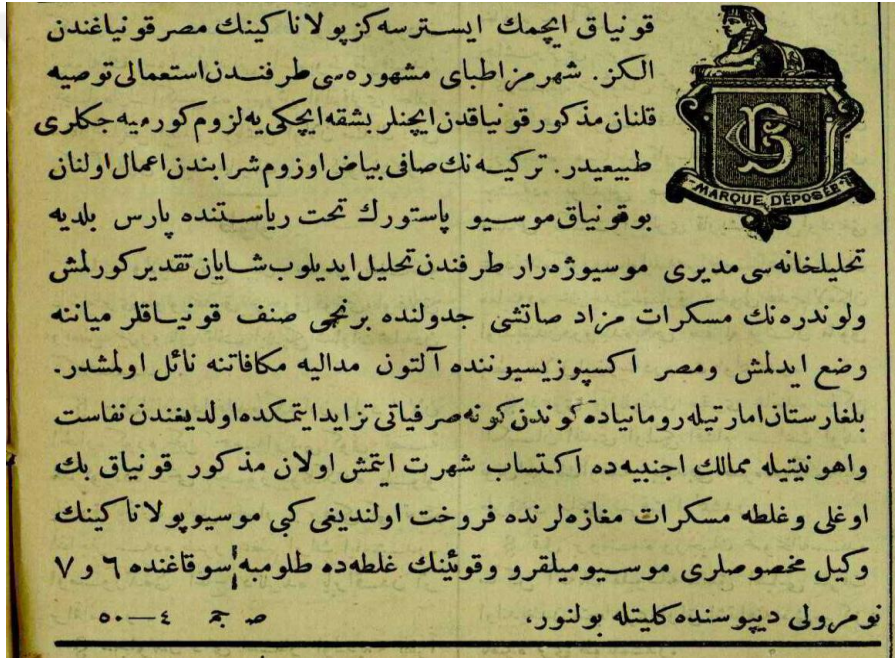 قونياق ايچمك ايسترسه كز پولاناكينك مصر قونياغندن
الكز. شهرمز اطباى مشهوره سى طرفندن استعمالى توصيه
قلنان مذكور قونياقدن ايچنلر بشقه ايچكى يه لزوم كورميه جكلرى
طبيعيدر. تركيبه نك صافى بياض اوزوم شرابندن اعمال اولنان
بو قونياق موسيو پاستورك تحت رياستنده پارس بلديه
تحليلخانه سى مديرى موسيو ژه رار طرفندن تحليل ايديلوب شايان تقدير كورلمش
ولوندره نك مسكرات مزاد صاتشى جدولنده برنجى صنف قونياقلر مياننه
وضع ايدلمش ومصر اكسپوزيسيوننده آلتون مداليه مكافاتنه نائل اولمشدر.
بلغارستان امارتيله رومانياده كوندن كونه صرفياتى تزايد ايتمكده اولديغندن نفاست
واهونيتيله ممالك اجنبيه ده اكتساب شهرت ايتمش اولان مذكور قونياق بك
اوغلى وغلطه مسكرات مغازه لرنده فروخت اولنديغى كبى موسيو پولاناكينك
وكيل مخصوصلرى موسيو ميلقرو وقوئينك غلطه ده طلومبه سوقاغنده ٦ و ٧
نومرولى ديپوسنده كليتله بولنور،
ص ج ٤—٥٠
MARQUE DÉPOSÉE